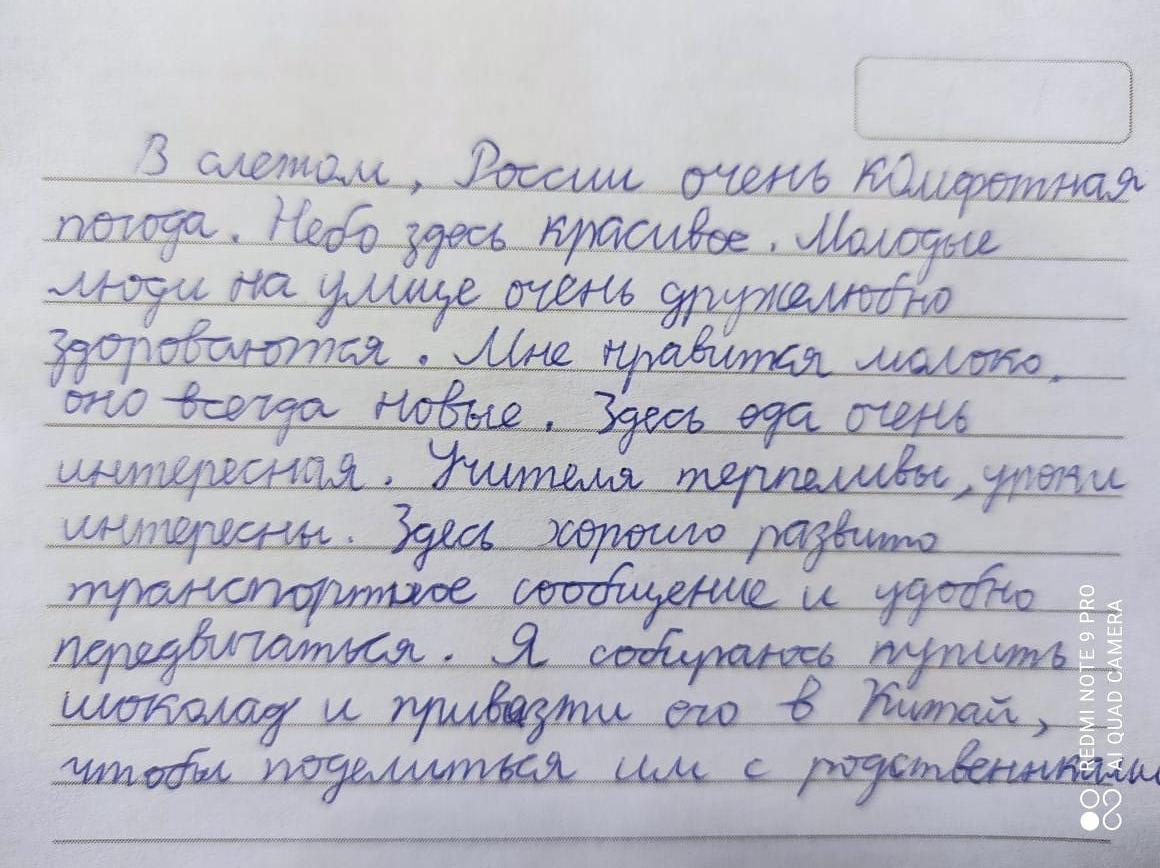 В слетом, России очень комфотная
погода. Небо здесь красивое. Молодые
люди на улице очень дружелюбно
здороваются. Мне нравится молоко.
оно всегда новые. Здесь еда очень
интересная. Учителя терпеливы, уроки
интересны. Здесь хорошо развито
транспортное сообщение и удобно
передвигаться. Я собираюсь купить
шоколад и привезти его в Китай,
чтобы поделиться им с родственниками
REDMI NOTE 9 PRO
AI QUAD CAMERA